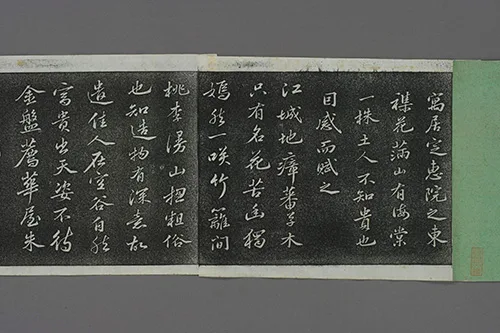 寓居定惠院之東
襍花滿山有海棠
一株土人不知貴也
因感而賦之
江城地瘴蕃草木
只有名花苦幽獨
嫣然一咲竹籬間
桃李漫山揔粗俗
也知造物有深意故
遣佳人在空谷自然
富貴出天姿不待
金盤薦華屋朱